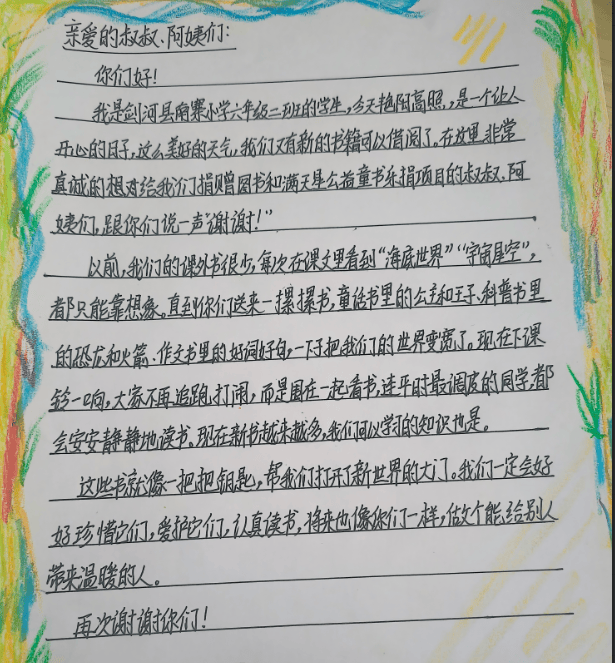 亲爱的叔叔、阿姨们:
你们好!
我是剑河县南寨小学六年级二班的学生,今天艳阳高照,是一个让人
开心的日子,这么美好的天气,我们又有新的书籍可以借阅了。在这里非常
真诚的想对给我们捐赠图书和满天星公益童书乐捐项目的叔叔、阿
姨们,跟你们说一声“谢谢!”
以前,我们的课外书很少,每次在课文里看到“海底世界”“宇宙星空”,
都只能靠想象。直到你们送来一摞摞书,童话书里的公主和王子、科普书里
的恐龙和火箭、作文书里的好词好句,一下子把我们的世界变宽了。现在下课
铃一响,大家不再追跑打闹,而是围在一起看书,连平时最调皮的同学,都
会安安静静地读书。现在新书越来越多,我们可以学习的知识也是。
这些书就像一把把钥匙,帮我们打开了新世界的大门。我们一定会好
好珍惜它们,爱护它们,认真读书,将来也像你们一样,做个能给别人
带来温暖的人。
再次谢谢你们!